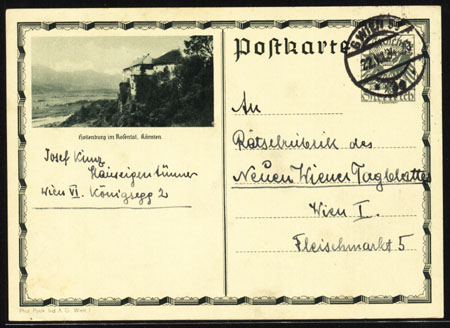 Postkarte
Hollenburg im Rosental, Kärnten
Josef Kunz
Hauseigentümer
Wien VI. Königsegg 2
An
Rätselrubrik des
Neuen Wiener Tagblattes
Wien I.
Fleischmarkt 5
WIEN